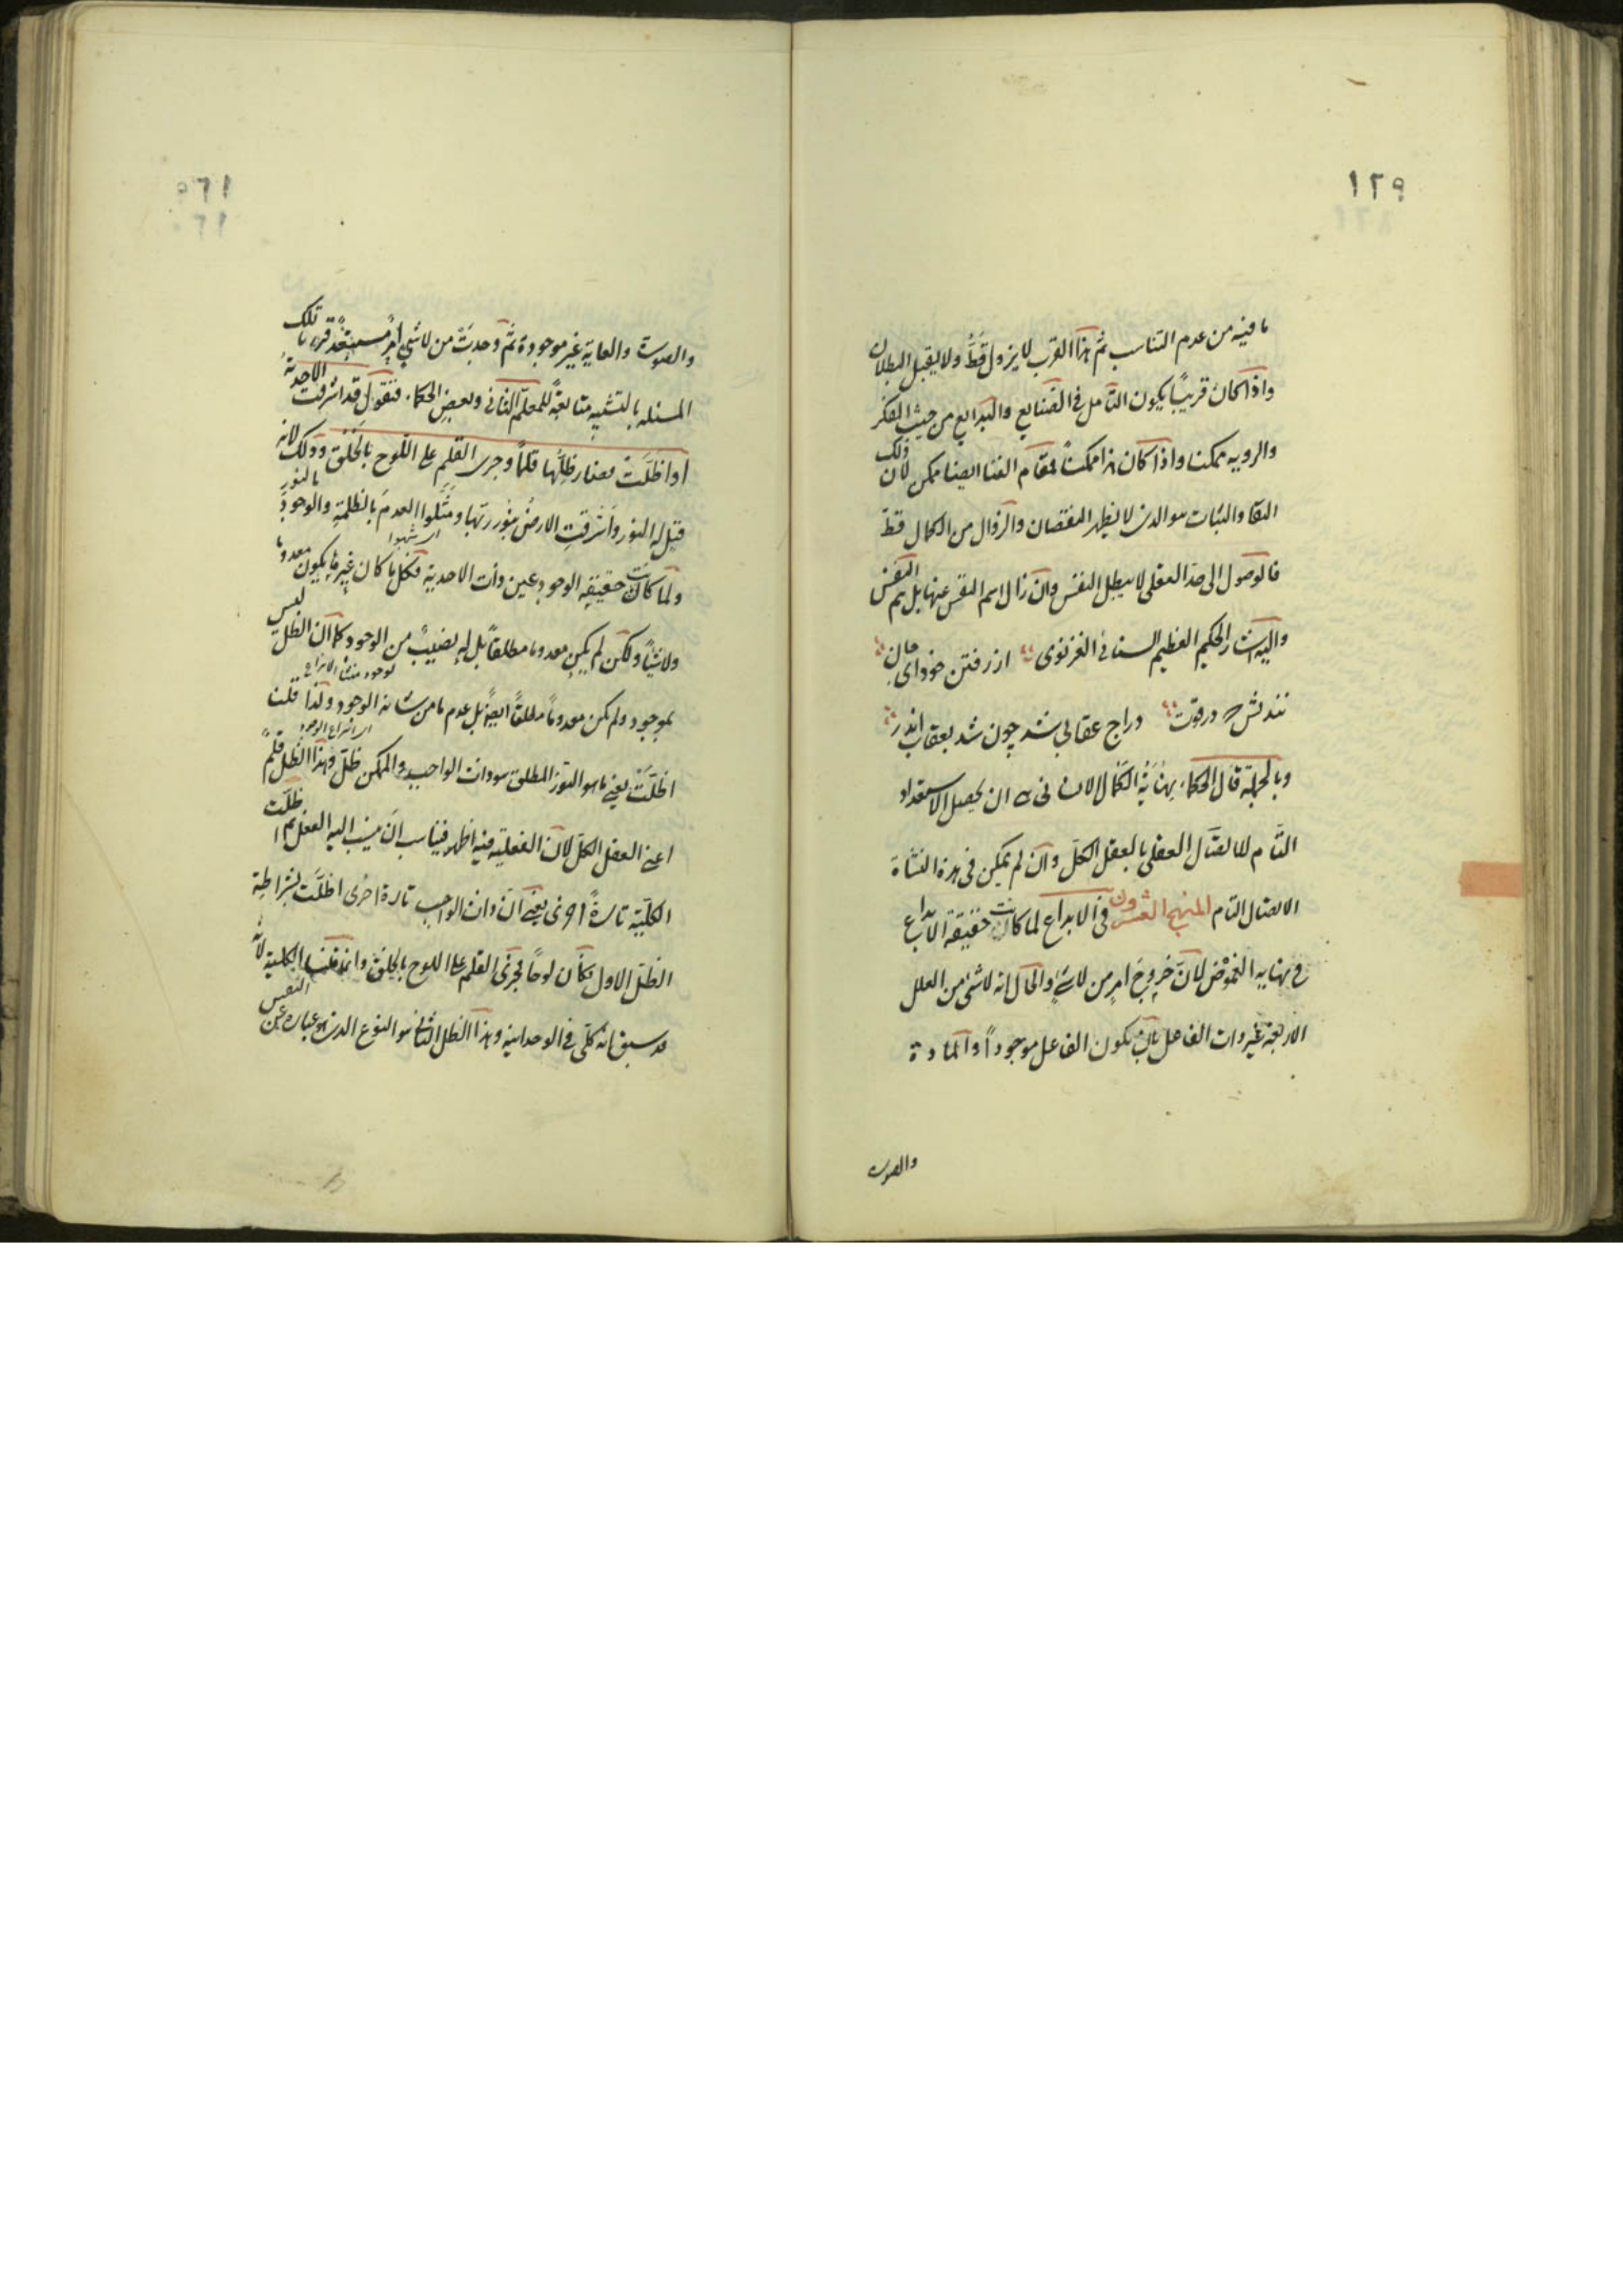 ١٢٩
ما فيه من عدم التناسب ثم هذا القرب لا يزول قط ولا يقبل البطلان
واذا كان قريبًا يكون التأمل فى الصنايع والبدايع من حيث الفكر
والرويه ممكنا واذا كان هذا ممكنًا فمقام الفنا ايضا ممكن لان ذلك
البقا والثبات هو الذى لا يظهر النقصان والزوال من الكمال قط
فالوصول الى حد العقلى لا يبطل النفس وان زال اسم النفس عنها بل يتم النفس
واليه اشار الحكيم العظيم السنائى الغزنوى از رفتن خود اى
دراج عقابى شد چون شد بعقاب اندر
وبالجملة قال الحكماء نهاية الكمال الانسانى ان يحصل الاستعداد
التام للاتصال العقلى بالعقل الكل وان لم يكن فى هذة النشأة
الاتصال التام المنهج العشرون فى الابداع لما كانت حقيقة الابداع
فى نهايه الغموض لان خروج امر من لا شئ والحال انه لا شئ من العلل
الاربعة غير ذات الفاعل بان يكون الفاعل موجودًا والمادة
والصورة
والصورة والغاية غير موجودة ثم وجدت من لا شئ امر مستبعد تلك
المسئله بالتشبيه متابعةً للمعلم الثانى وبعض الحكماء فنقول قد اشرقت الاحدية
او اظلت فصار ظلها قلمًا وجرى القلم على اللوح بالخلق وذلك لانه
قيل له النور واشرقت الارض بنور ربها ومثلوا العدم بالظلمة والوجود بالنور
اى شبهوا
ولما كانت حقيقة الوجود عين ذات الاحدية فكل ما كان غيرها يكون معدوما
ولا شيئًا ولكن لم يكن معدوما مطلقًا بل له نصيب من الوجود كما ان الظل ليس
بموجود ولم يكن معدومًا مطلقًا ايضًا بل عدم ما من شانه الوجود ولذا قلت
اظلت يعنى ما هو النور المطلق هو ذات الواجب والممكن ظل وهذا الظل قلم
اعنى العقل الكل لان الفعلية فيه اظهر فيناسب ان ينسب اليه الفعل ثم اظلت
الكلية تارةً اخرى يعنى ان ذات الواجب تارة اخرى اظلت بشراطة
الظل الاول فكان لوحًا فجرى القلم على اللوح بالخلق وانما قلنا الكلية لانه
قد سبق انه كلى فى الوحدانية وهذا الظل الثانى هو النوع الذى هو عبارة عن النفس